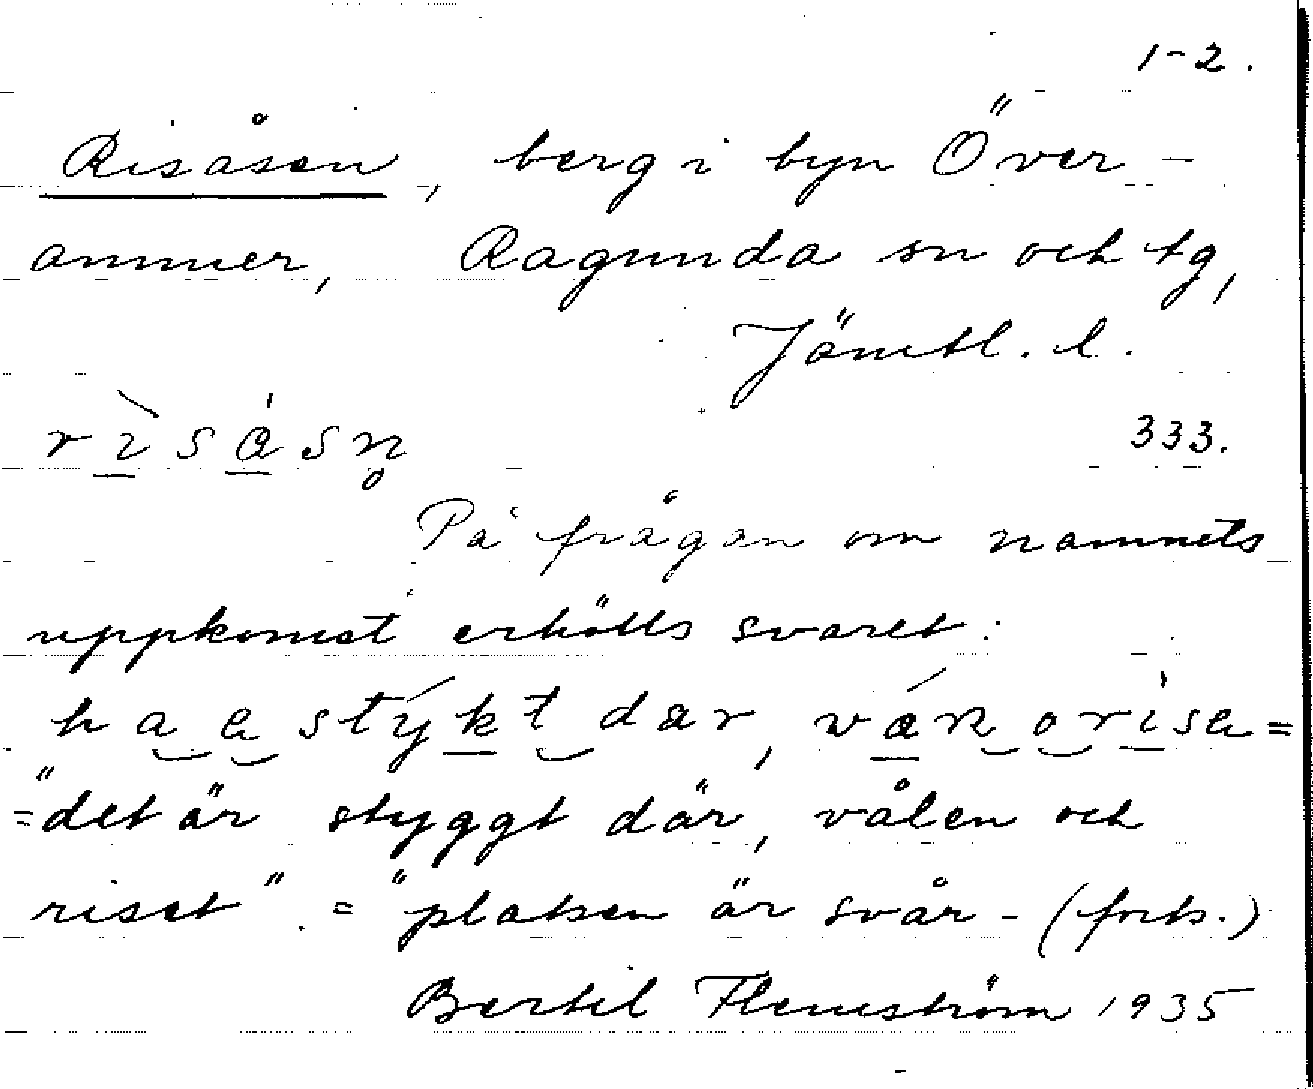 1-2.
Risåsen, berg i byn Över-
ammer, Ragunda sn och tg,
Jämtl. l.
333.
På frågan om namnets
uppkomst erhölls svaret:
"det är styggt där, vålen och
riset". = "platsen är svår - (forts.)
Bertil Flemström 1935